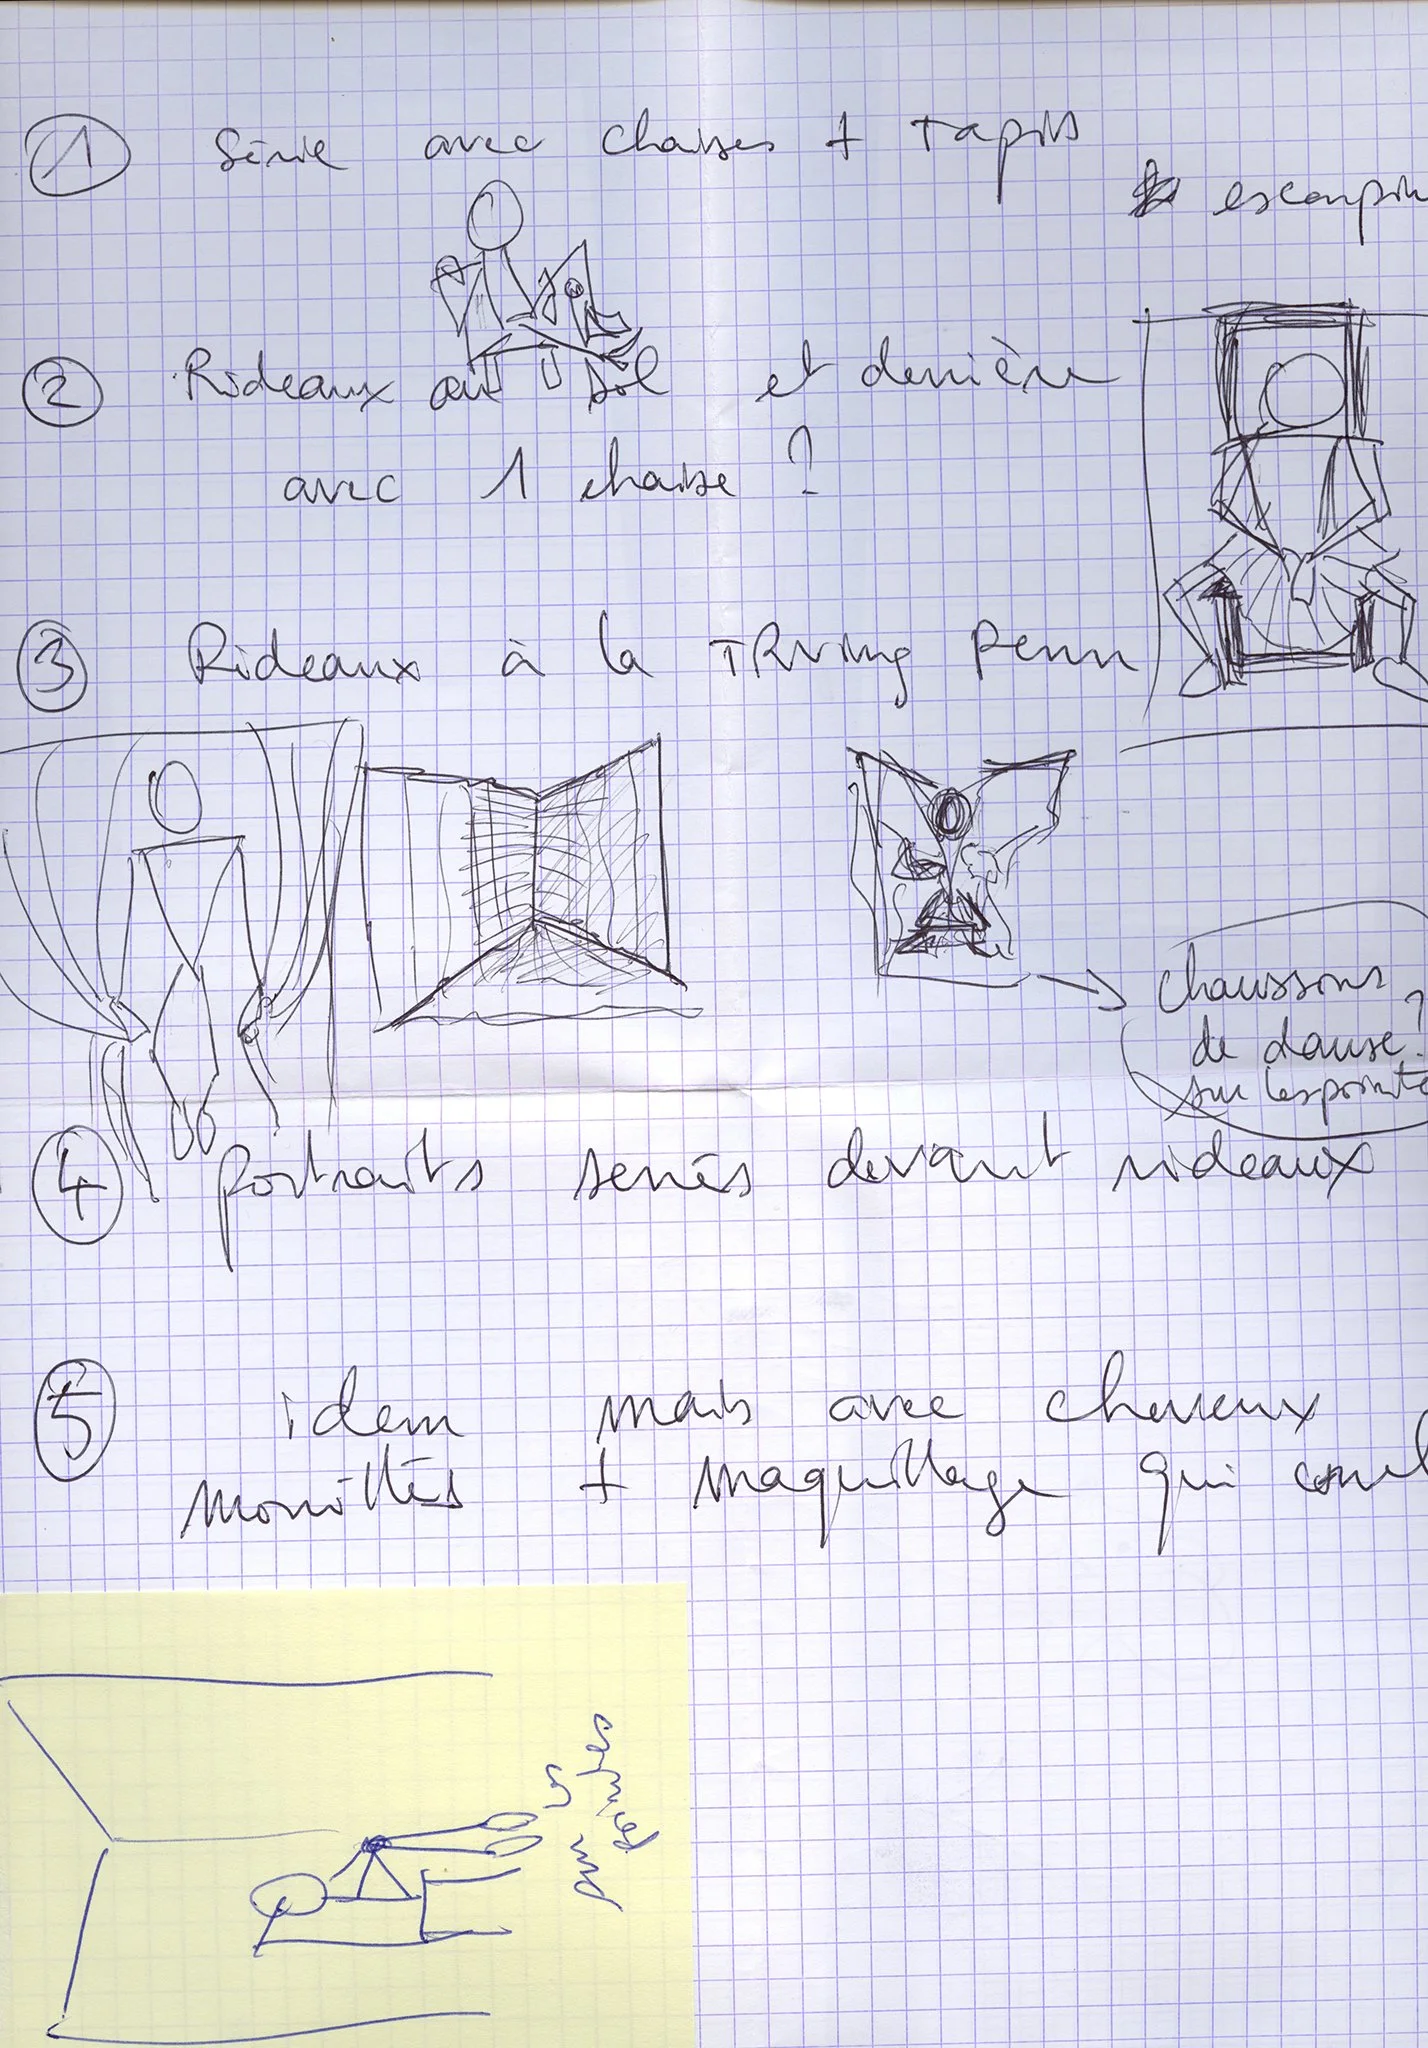 1 Série avec chaises + tapis
escarpin
2 Rideaux au sol et derrière
avec 1 chaise ?
3 Rideaux à la IRving Penn
chaussons
de danse ?
sur les pointe
4 portraits serrés devant rideaux
5 idem mais avec cheveux
mouillés + maquillage qui coul
sur
jambes